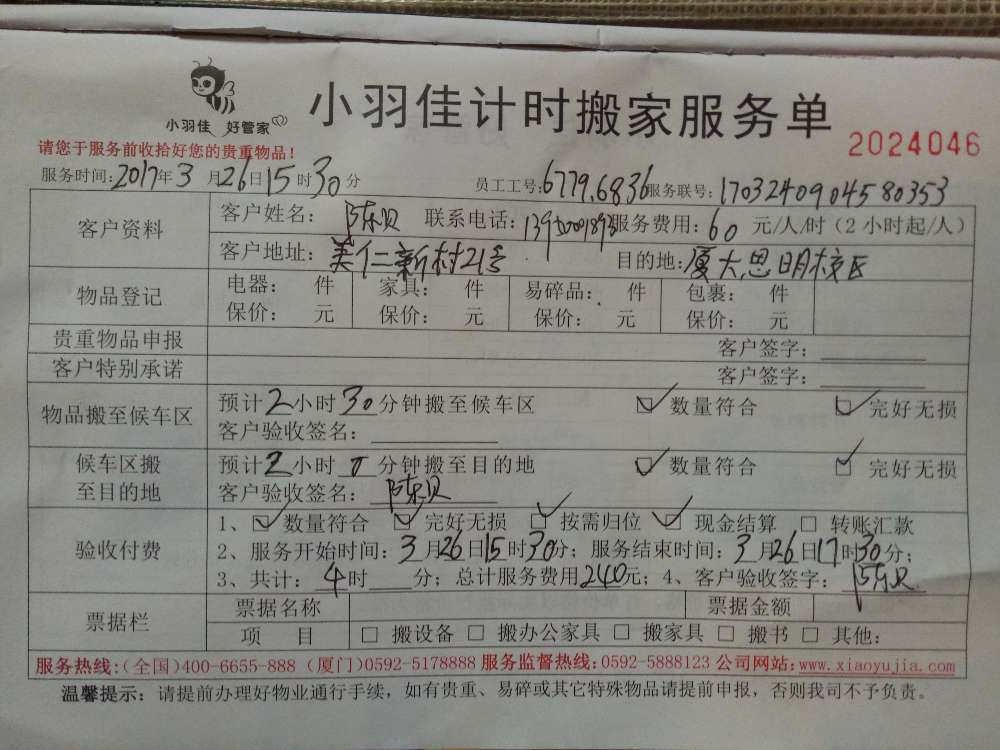 小羽佳 好管家
小羽佳计时搬家服务单
2024046
请您于服务前收拾好您的贵重物品！
服务时间：2017年3月26日15时30分 员工工号：6779.6836 服务联号：1703240904580353
客户资料 客户姓名：陈贝 联系电话： 服务费用：60元/人/时（2小时起/人）
客户地址：美仁新村21号 目的地：厦大思明校区
物品登记 电器： 件 家具： 件 易碎品： 件 包裹： 件
保价： 元 保价： 元 保价： 元 保价： 元
贵重物品申报 客户签字：
客户特别承诺 客户签字：
物品搬至候车区 预计2小时30分钟搬至候车区 ☑ 数量符合 ☑ 完好无损
客户验收签名：
候车区搬至目的地 预计2小时0分钟搬至目的地 ☑ 数量符合 ☑ 完好无损
客户验收签名：陈贝
验收付费 1、☑ 数量符合 ☑ 完好无损 ☑ 按需归位 ☑ 现金结算 □ 转账汇款
2、服务开始时间：3月26日15时30分；服务结束时间：3月26日17时30分；
3、共计：4时 分；总计服务费用240元；4、客户验收签字：陈贝
票据栏 票据名称 票据金额
项 目 □ 搬设备 □ 搬办公家具 □ 搬家具 □ 搬书 □ 其他：
服务热线：（全国）400-6655-888（厦门）0592-5178888 服务监督热线：0592-5888123 公司网站：www.xiaoyujia.com
温馨提示：请提前办理好物业通行手续，如有贵重、易碎或其它特殊物品请提前申报，否则我司不予负责。